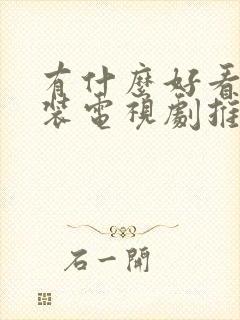 有什麼好看
裝電視劇推
石一開